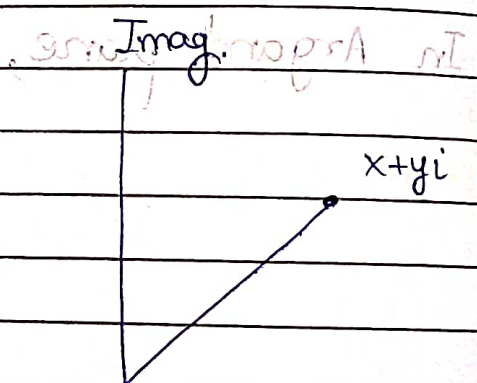 Imag.
x+yi